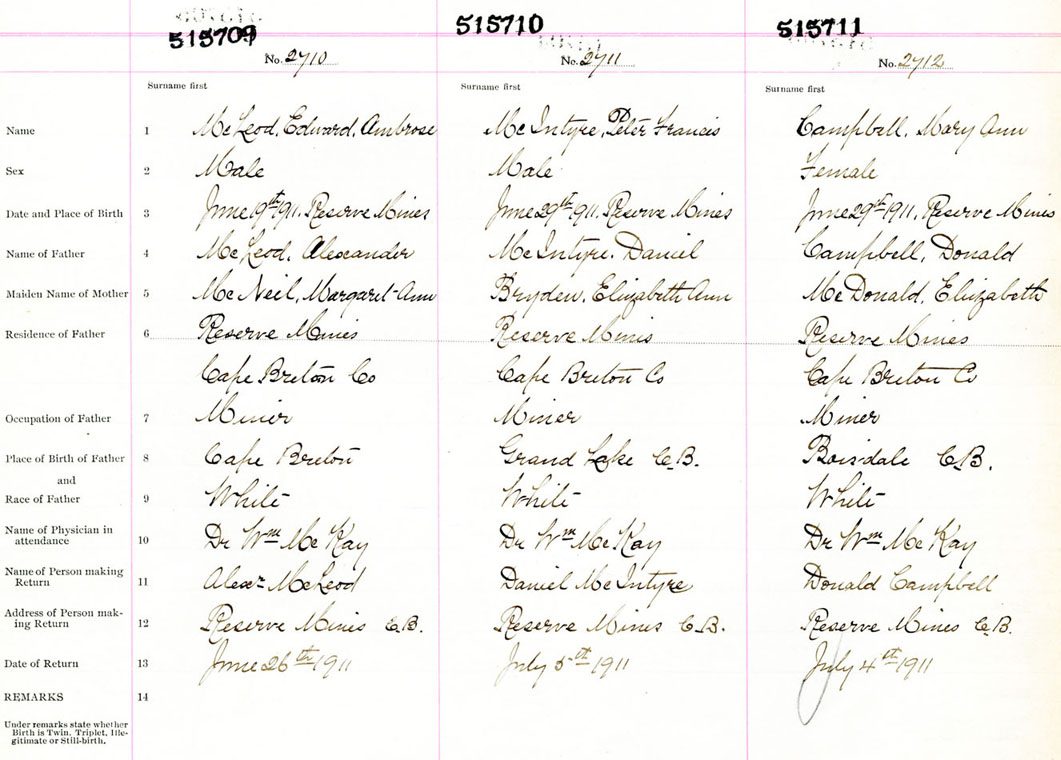 515709 515710 515711
No. 2710 No. 2711 No. 2712
Surname first Surname first Surname first
Name 1 McLeod, Edward, Ambrose McIntyre, Peter Francis Campbell, Mary Ann
Sex 2 Male Male Female
Date and Place of Birth 3 June 19th 1911. Reserve Mines June 29th 1911. Reserve Mines June 29th 1911, Reserve Mines
Name of Father 4 McLeod, Alexander McIntyre. Daniel Campbell, Donald
Maiden Name of Mother 5 McNeil, Margaret-Ann Bryden, Elizabeth Ann McDonald, Elizabeth
Residence of Father 6 Reserve Mines Reserve Mines Reserve Mines
Cape Breton Co Cape Breton Co Cape Breton Co
Occupation of Father 7 Miner Miner Miner
Place of Birth of Father 8 Cape Breton Grand Lake C.B. Boisdale C.B.
and
Race of Father 9 White White White
Name of Physician in
attendance 10 Dr Wm McKay Dr Wm McKay Dr Wm McKay
Name of Person making
Return 11 Alexr McLeod Daniel McIntyre Donald Campbell
Address of Person mak-
ing Return 12 Reserve Mines C.B. Reserve Mines C.B. Reserve Mines C.B.
Date of Return 13 June 26th 1911 July 5th 1911 July 4th 1911
REMARKS 14
Under remarks state whether
Birth is Twin, Triplet, Ille-
gitimate or Still-birth.